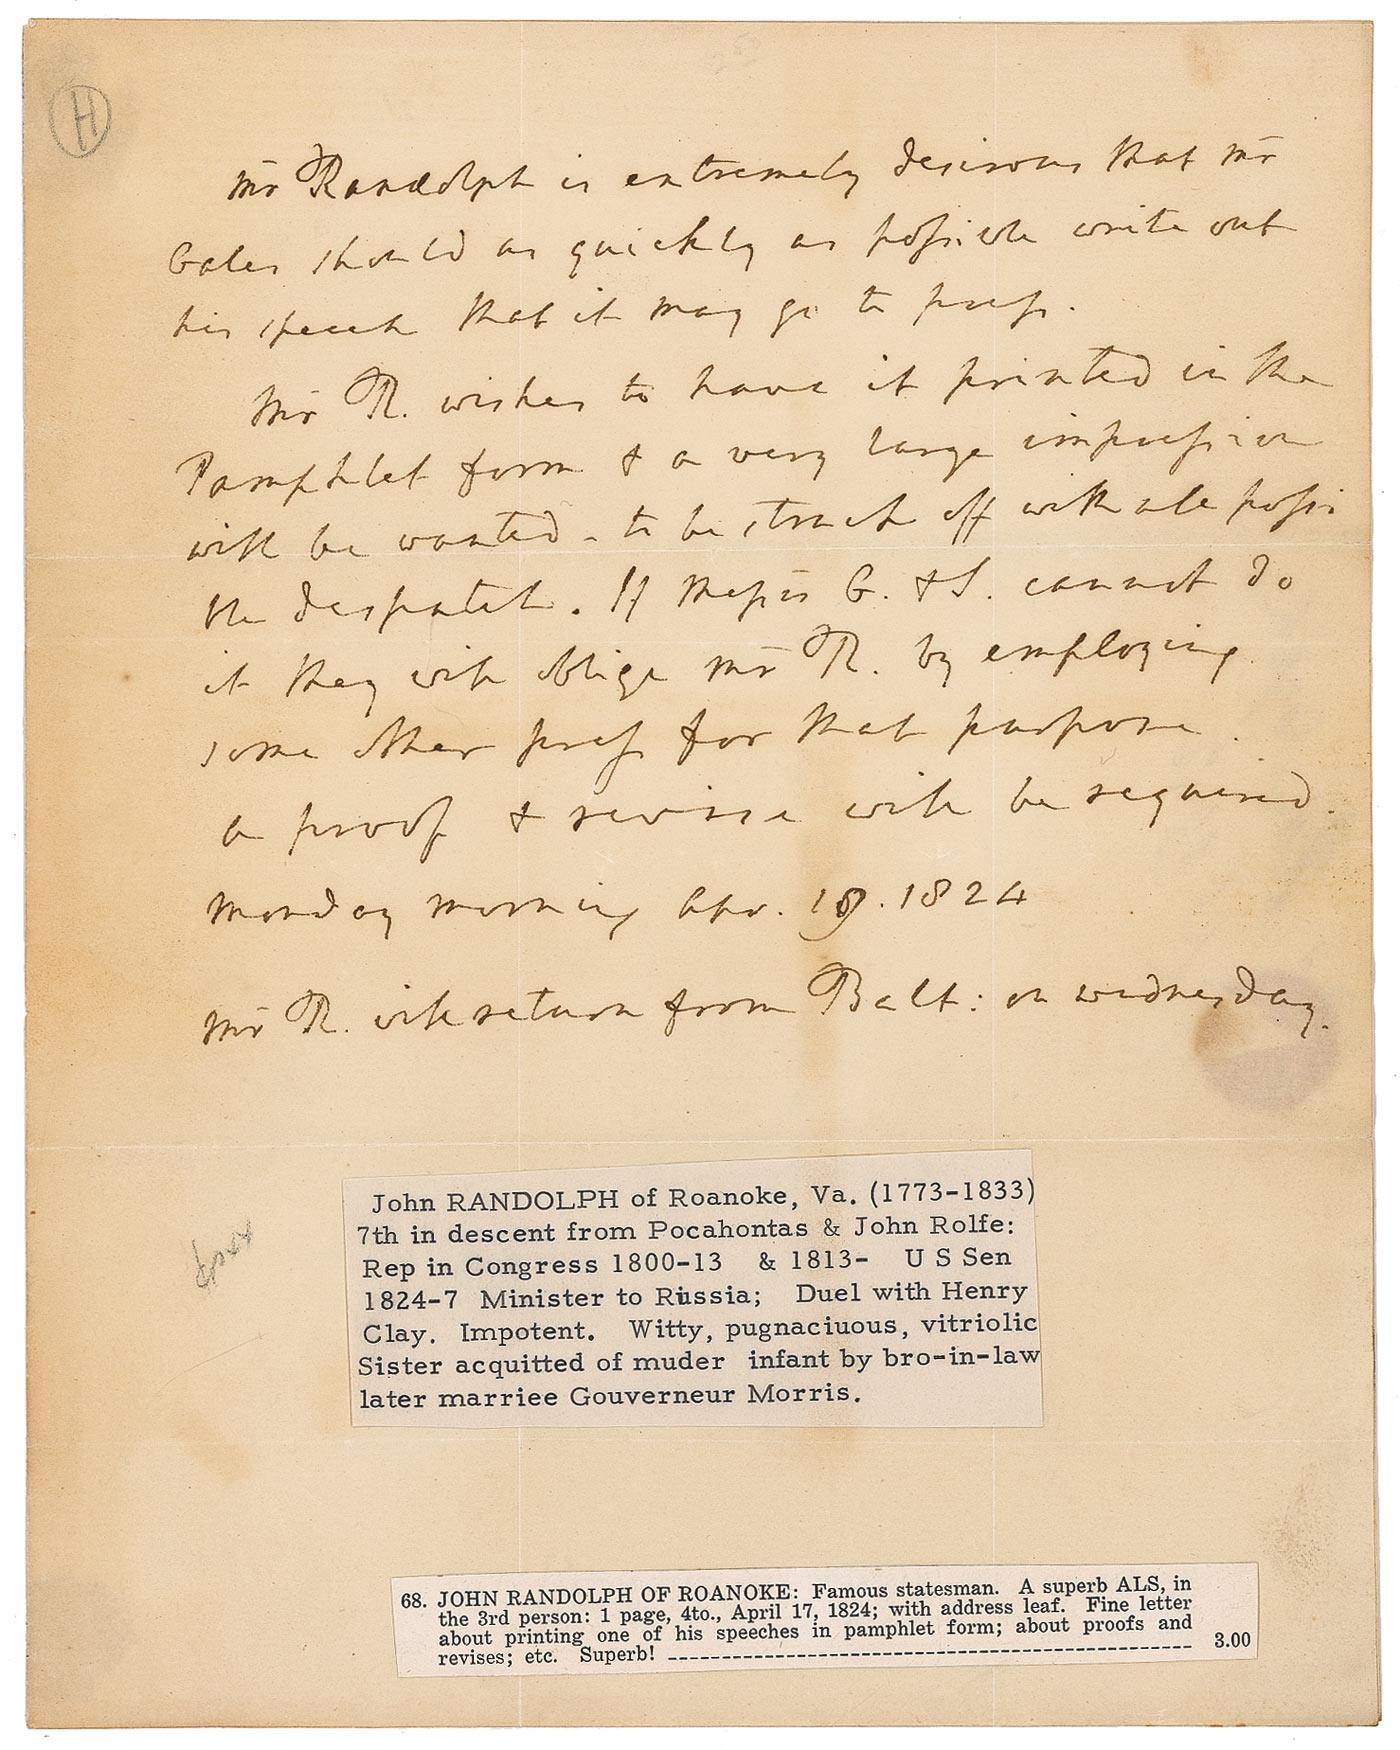 H
Mr Randolph is extremely desirous that Mr
Gales should as quickly as possible write out
his speech that it may go to press.
Mr R. wishes to have it printed in the
Pamphlet form & a very large impression
will be wanted - to be struck off with all possi
ble despatch. If Messrs G. & S. cannot do
it they will oblige Mr R. by employing
some other press for that purpose.
a proof & revise will be required.
Monday morning Apr. 19. 1824
Mr R. will return from Balt: on wednesday.
John RANDOLPH of Roanoke, Va. (1773-1833)
7th in descent from Pocahontas & John Rolfe:
Rep in Congress 1800-13 & 1813- U S Sen
1824-7 Minister to Russia; Duel with Henry
Clay. Impotent. Witty, pugnaciuous, vitriolic
Sister acquitted of muder infant by bro-in-law
later marriee Gouverneur Morris.
68. JOHN RANDOLPH OF ROANOKE: Famous statesman. A superb ALS, in
the 3rd person: 1 page, 4to., April 17, 1824; with address leaf. Fine letter
about printing one of his speeches in pamphlet form; about proofs and
revises; etc. Superb! 3.00